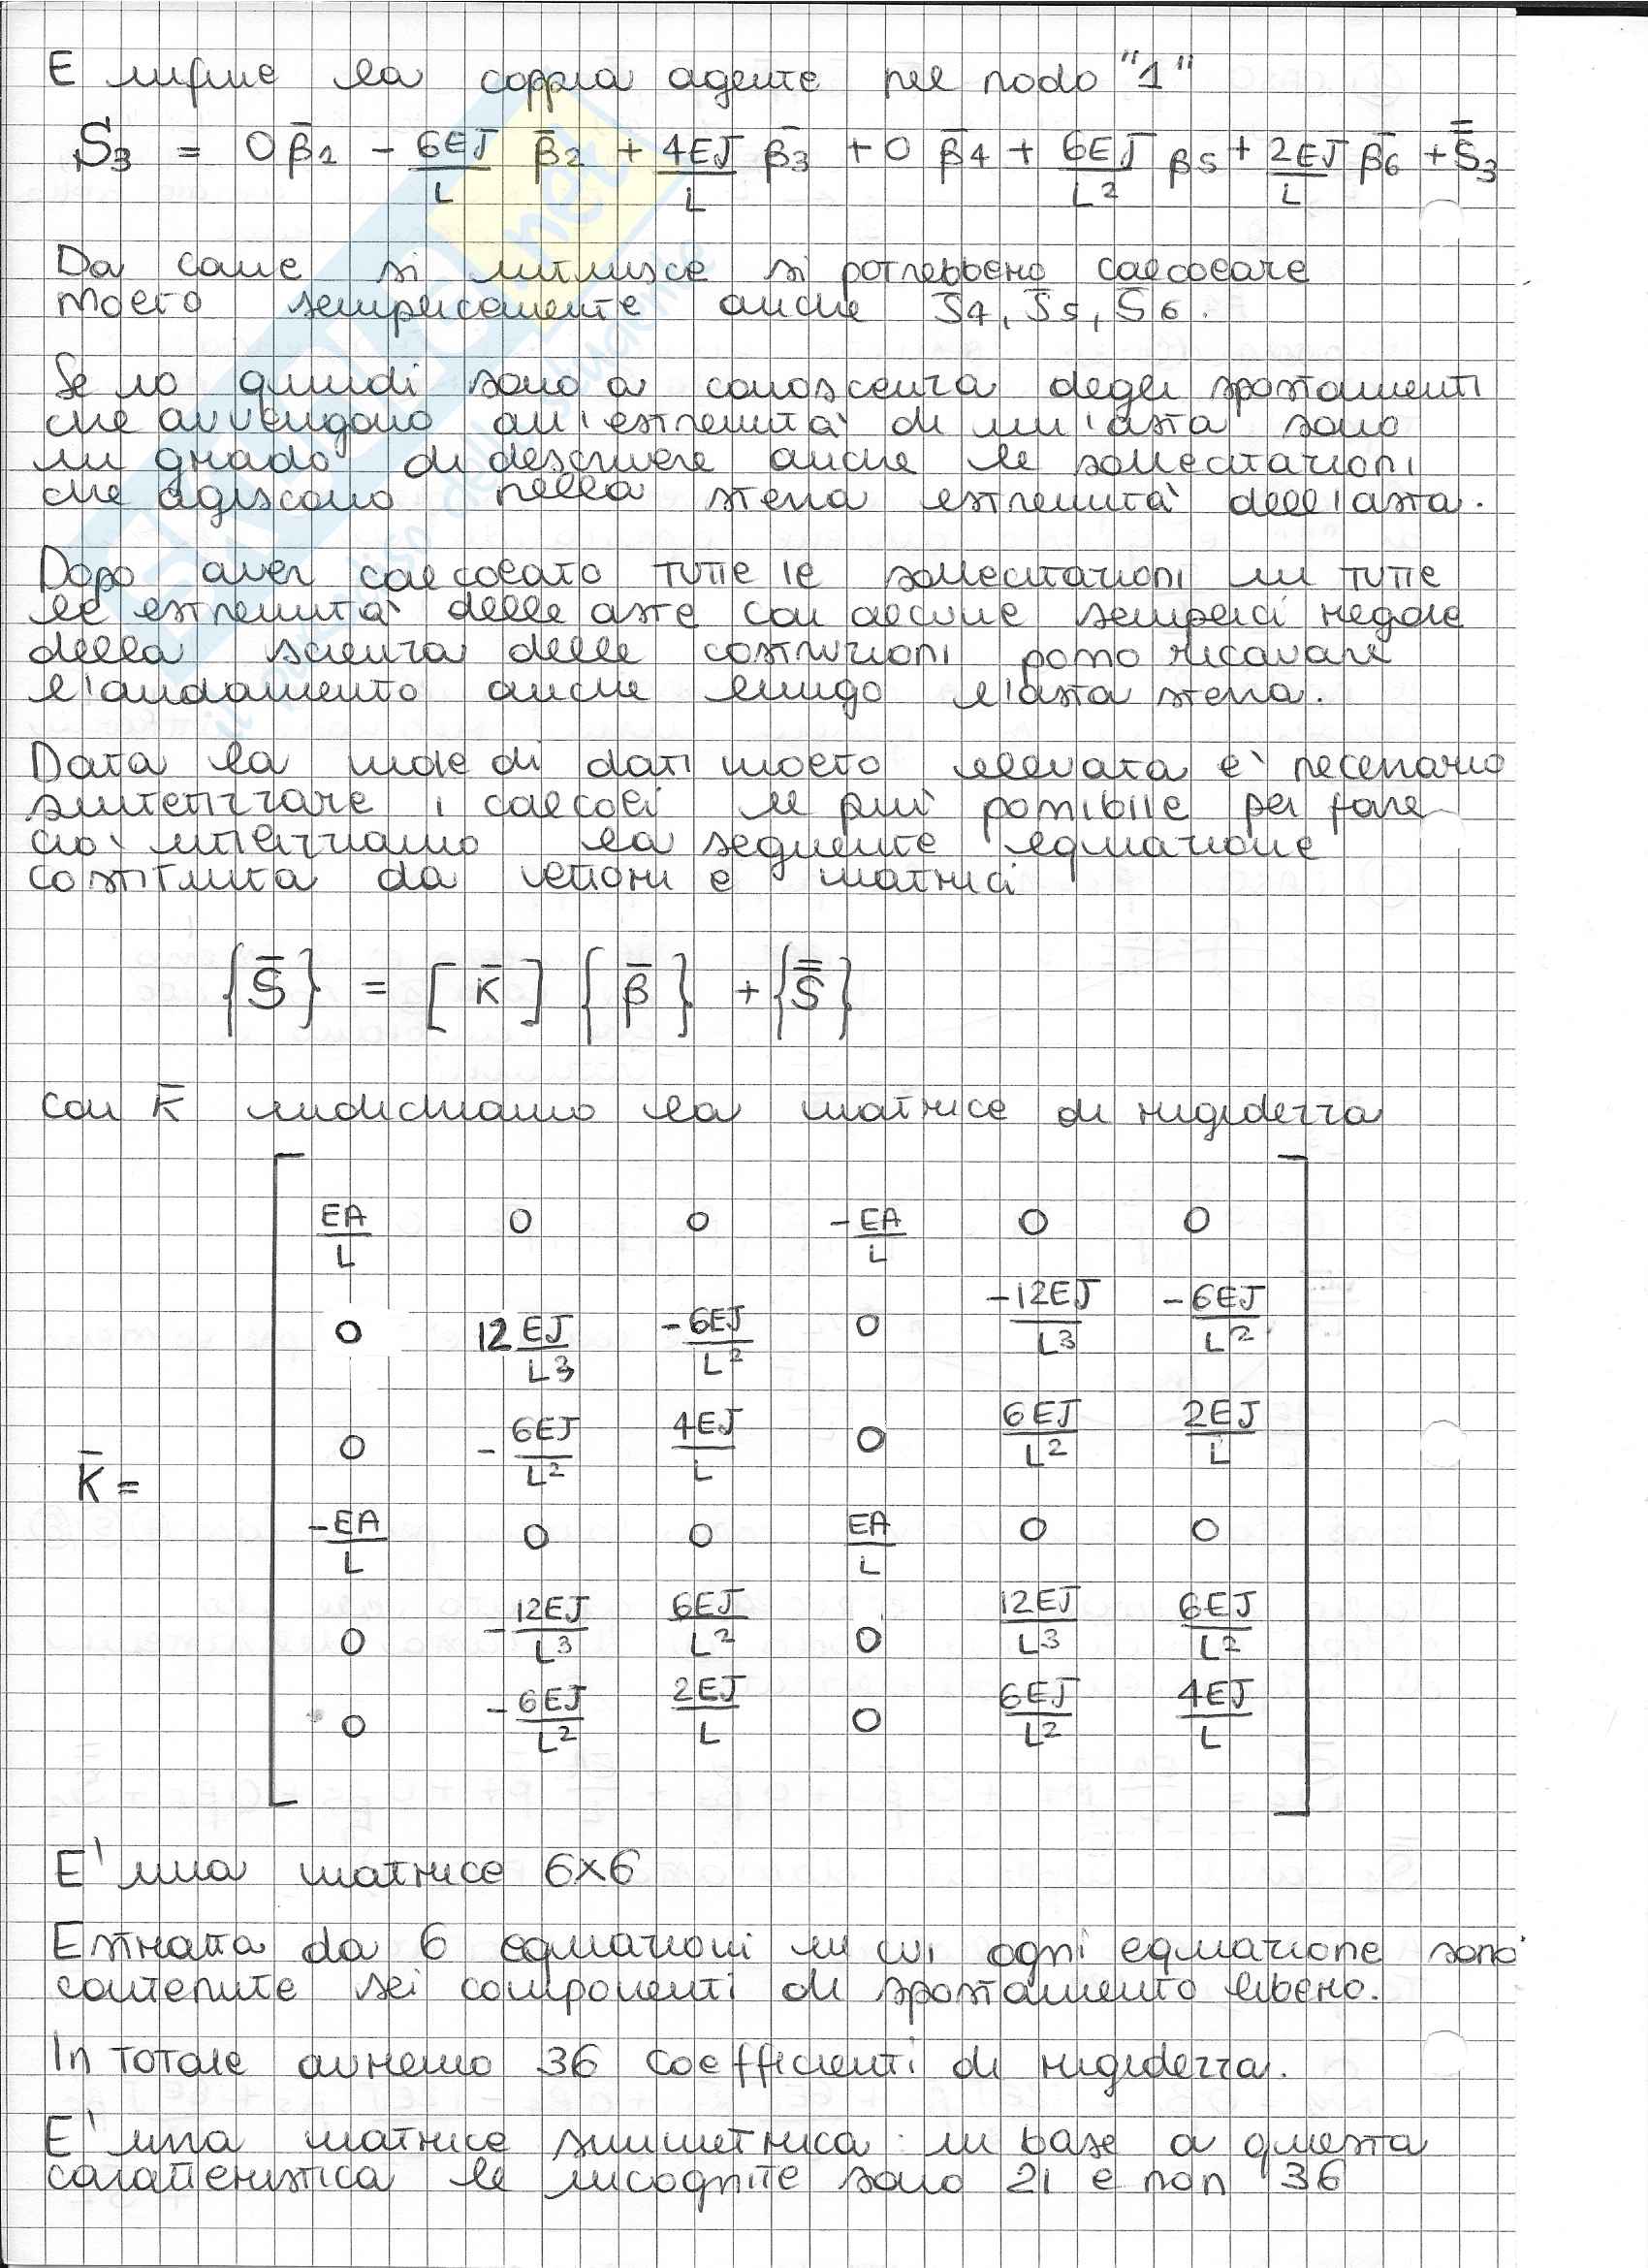 E infine la coppia agente nel nodo "1"
S̄3 = 0β̄2 - 6EJ/L β̄2 + 4EJ/L β̄3 + 0 β̄4 + 6EJ/L² β5 + 2EJ/L β̄6 + S̿3
Da come si intuisce si potrebbero calcolare
molto semplicemente anche S̄4, S̄5, S̄6.
Se io quindi sono a conoscenza degli spostamenti
che avvengono all'estremità di un'asta sono
in grado di descrivere anche le sollecitazioni
che agiscono nella stessa estremità dell'asta.
Dopo aver calcolato tutte le sollecitazioni in tutte
le estremità delle aste con alcune semplici regole
della scienza delle costruzioni posso ricavare
l'andamento anche lungo l'asta stessa.
Data la mole di dati molto elevata e' necessario
sintetizzare i calcoli il più possibile per fare
ciò utilizziamo la seguente equazione
costituita da vettori e matrici
{S̄} = [K̄] {β̄} + {S̿}
con K̄ indichiamo la matrice di rigidezza
EA/L 0 0 -EA/L 0 0
0 12EJ/L3 -6EJ/L² 0 -12EJ/L3 -6EJ/L²
0 -6EJ/L² 4EJ/L 0 6EJ/L² 2EJ/L
K̄ =
-EA/L 0 0 EA/L 0 0
0 -12EJ/L³ 6EJ/L² 0 12EJ/L³ 6EJ/L²
0 -6EJ/L² 2EJ/L 0 6EJ/L² 4EJ/L
E' una matrice 6x6
Estratta da 6 equazioni in cui ogni equazione sono
contenute sei componenti di spostamento libero.
In totale avremo 36 coefficienti di rigidezza.
E' una matrice simmetrica in base a questa
caratteristica le incognite sono 21 e non 36